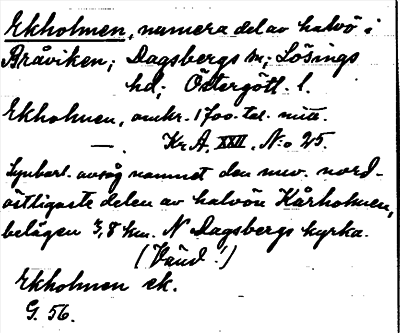 Ekholmen, numera del av halvö i
Bråviken; Dagsbergs sn; Lösings
hd; Östergötl. l.
Ekholmen, omkr. 1700-tal. mitt.
—. Kr.A. XXII. No 25.
Synbarl. avsåg namnet den nuv. nord-
östligaste delen av halvön Kårholmen,
belägen 3,8 km. N Dagsbergs kyrka.
(Vänd!)
Ekholmen ek.
G. 56.